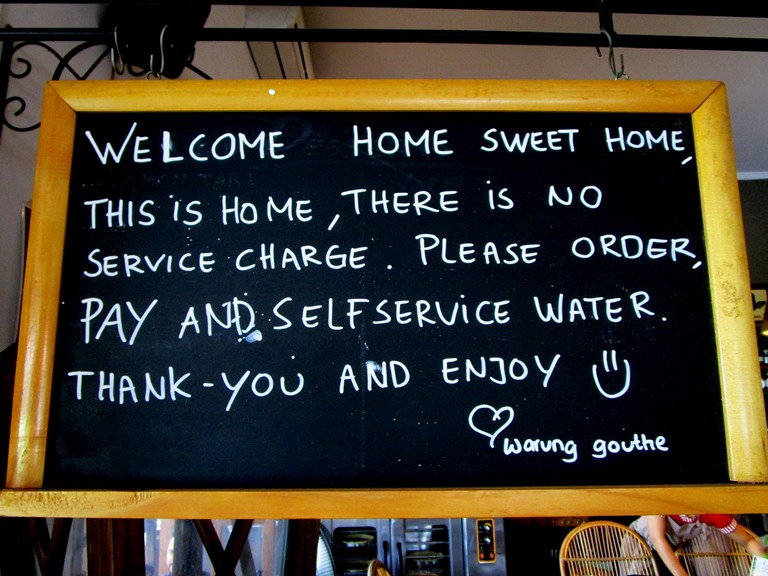 WELCOME HOME SWEET HOME,
THIS IS HOME, THERE IS NO
SERVICE CHARGE. PLEASE ORDER,
PAY AND SELFSERVICE WATER.
THANK-YOU AND ENJOY
warung gouthe